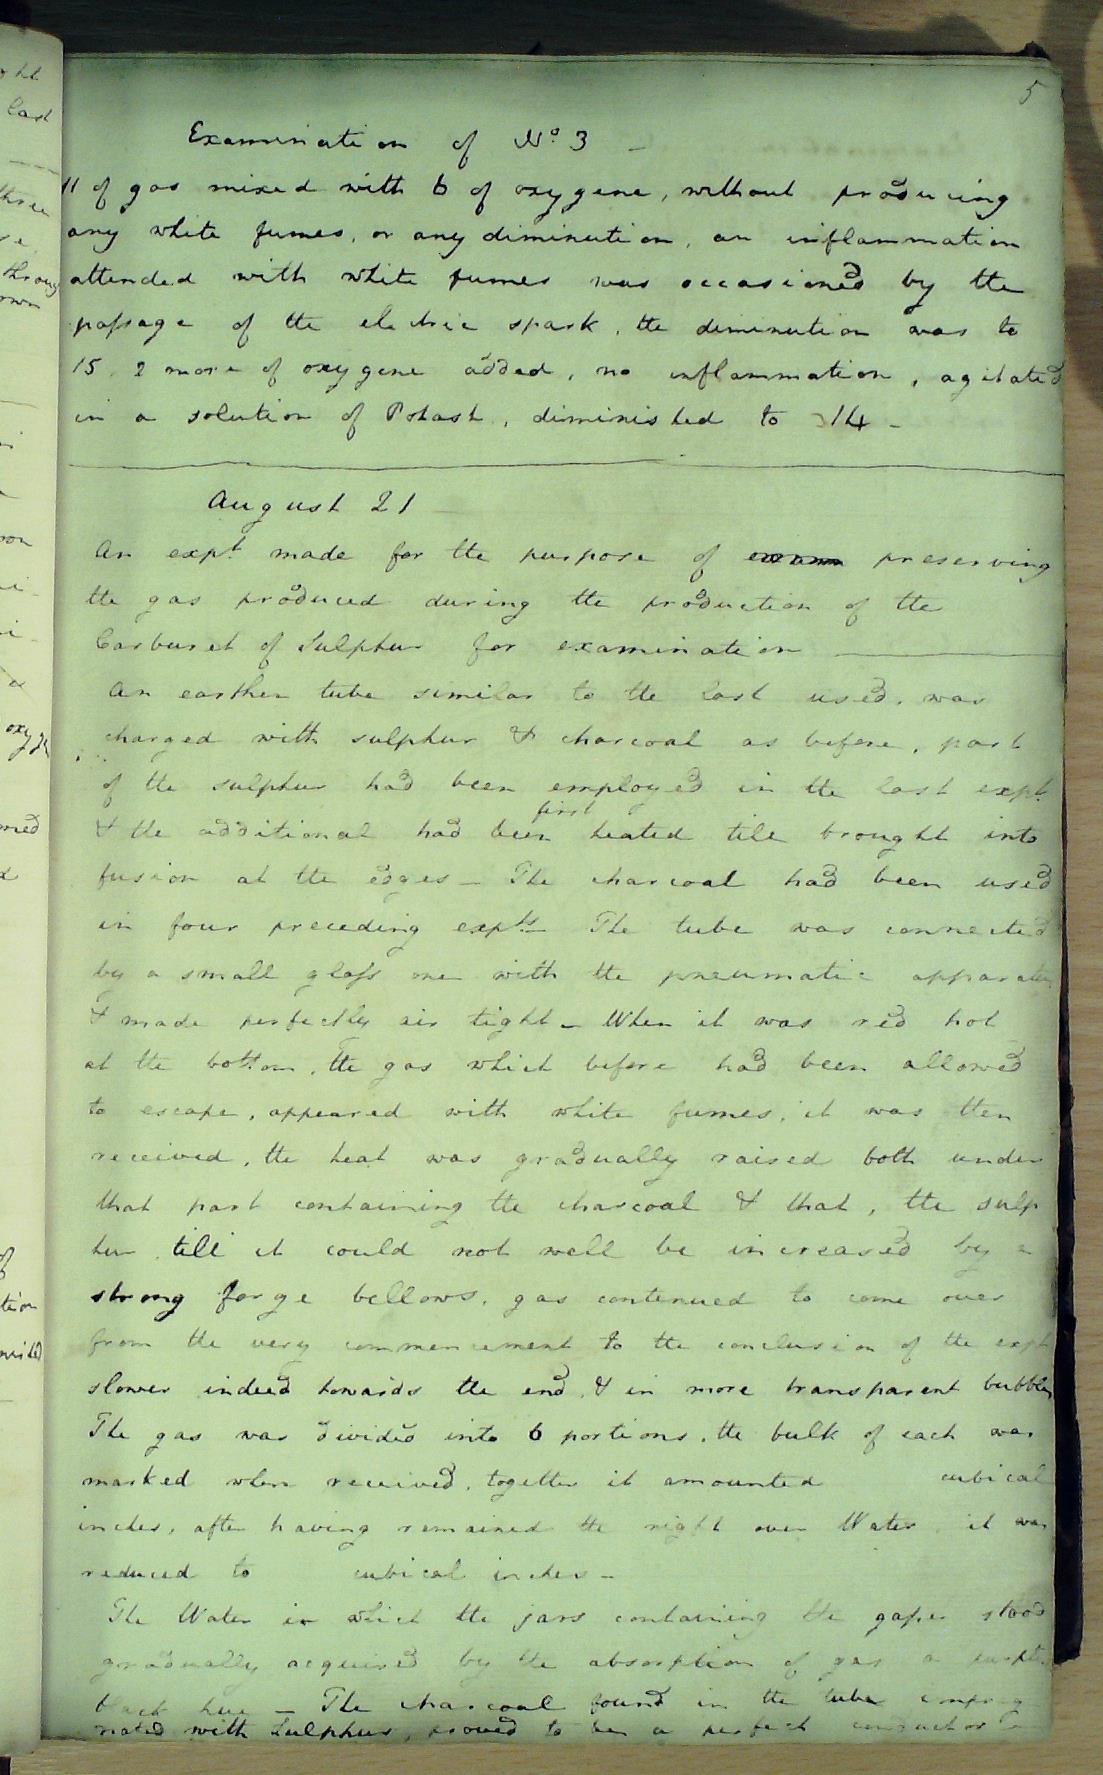 5
Examination of No. 3 -
11 of gas mixed with 6 of oxygene, without producing
any white fumes, or any diminution, an inflammation
attended with white fumes was occasioned by the
passage of the electric spark, the diminution was to
15. 2 more of oxygene added, no inflammation, agitated
in a solution of Potash, diminished to 14 -
August 21
An expt made for the purpose of preserving
the gas produced during the production of the
Carburet of Sulphur for examination
An earthen tube similar to the last used, was
charged with sulphur & charcoal as before, part
of the sulphur had been employed in the last expt
& the additional had been first heated till brought into
fusion at the edges - The charcoal had been used
in four preceding expts - The tube was connected
by a small glass one with the pneumatic apparatus
& made perfectly air tight - When it was red hot
at the bottom, the gas which before had been allowed
to escape, appeared with white fumes, it was then
received, the heat was gradually raised both under
that part containing the charcoal & that, the sulp
hur till it could not well be increased by a
strong forge bellows. gas continued to come over
from the very commencement to the conclusion of the expt
slower indeed towards the end, & in more transparent bubbles
The gas was divided into 6 portions, the bulk of each was
marked when received, together it amounted cubical
inches, after having remained the night over Water it was
reduced to cubical inches -
The Water in which the jars containing the gases stood
gradually acquired by the absorption of gas a
black hue - The charcoal found in the tube impreg
nated with Sulphur, proved to be a perfect conductor